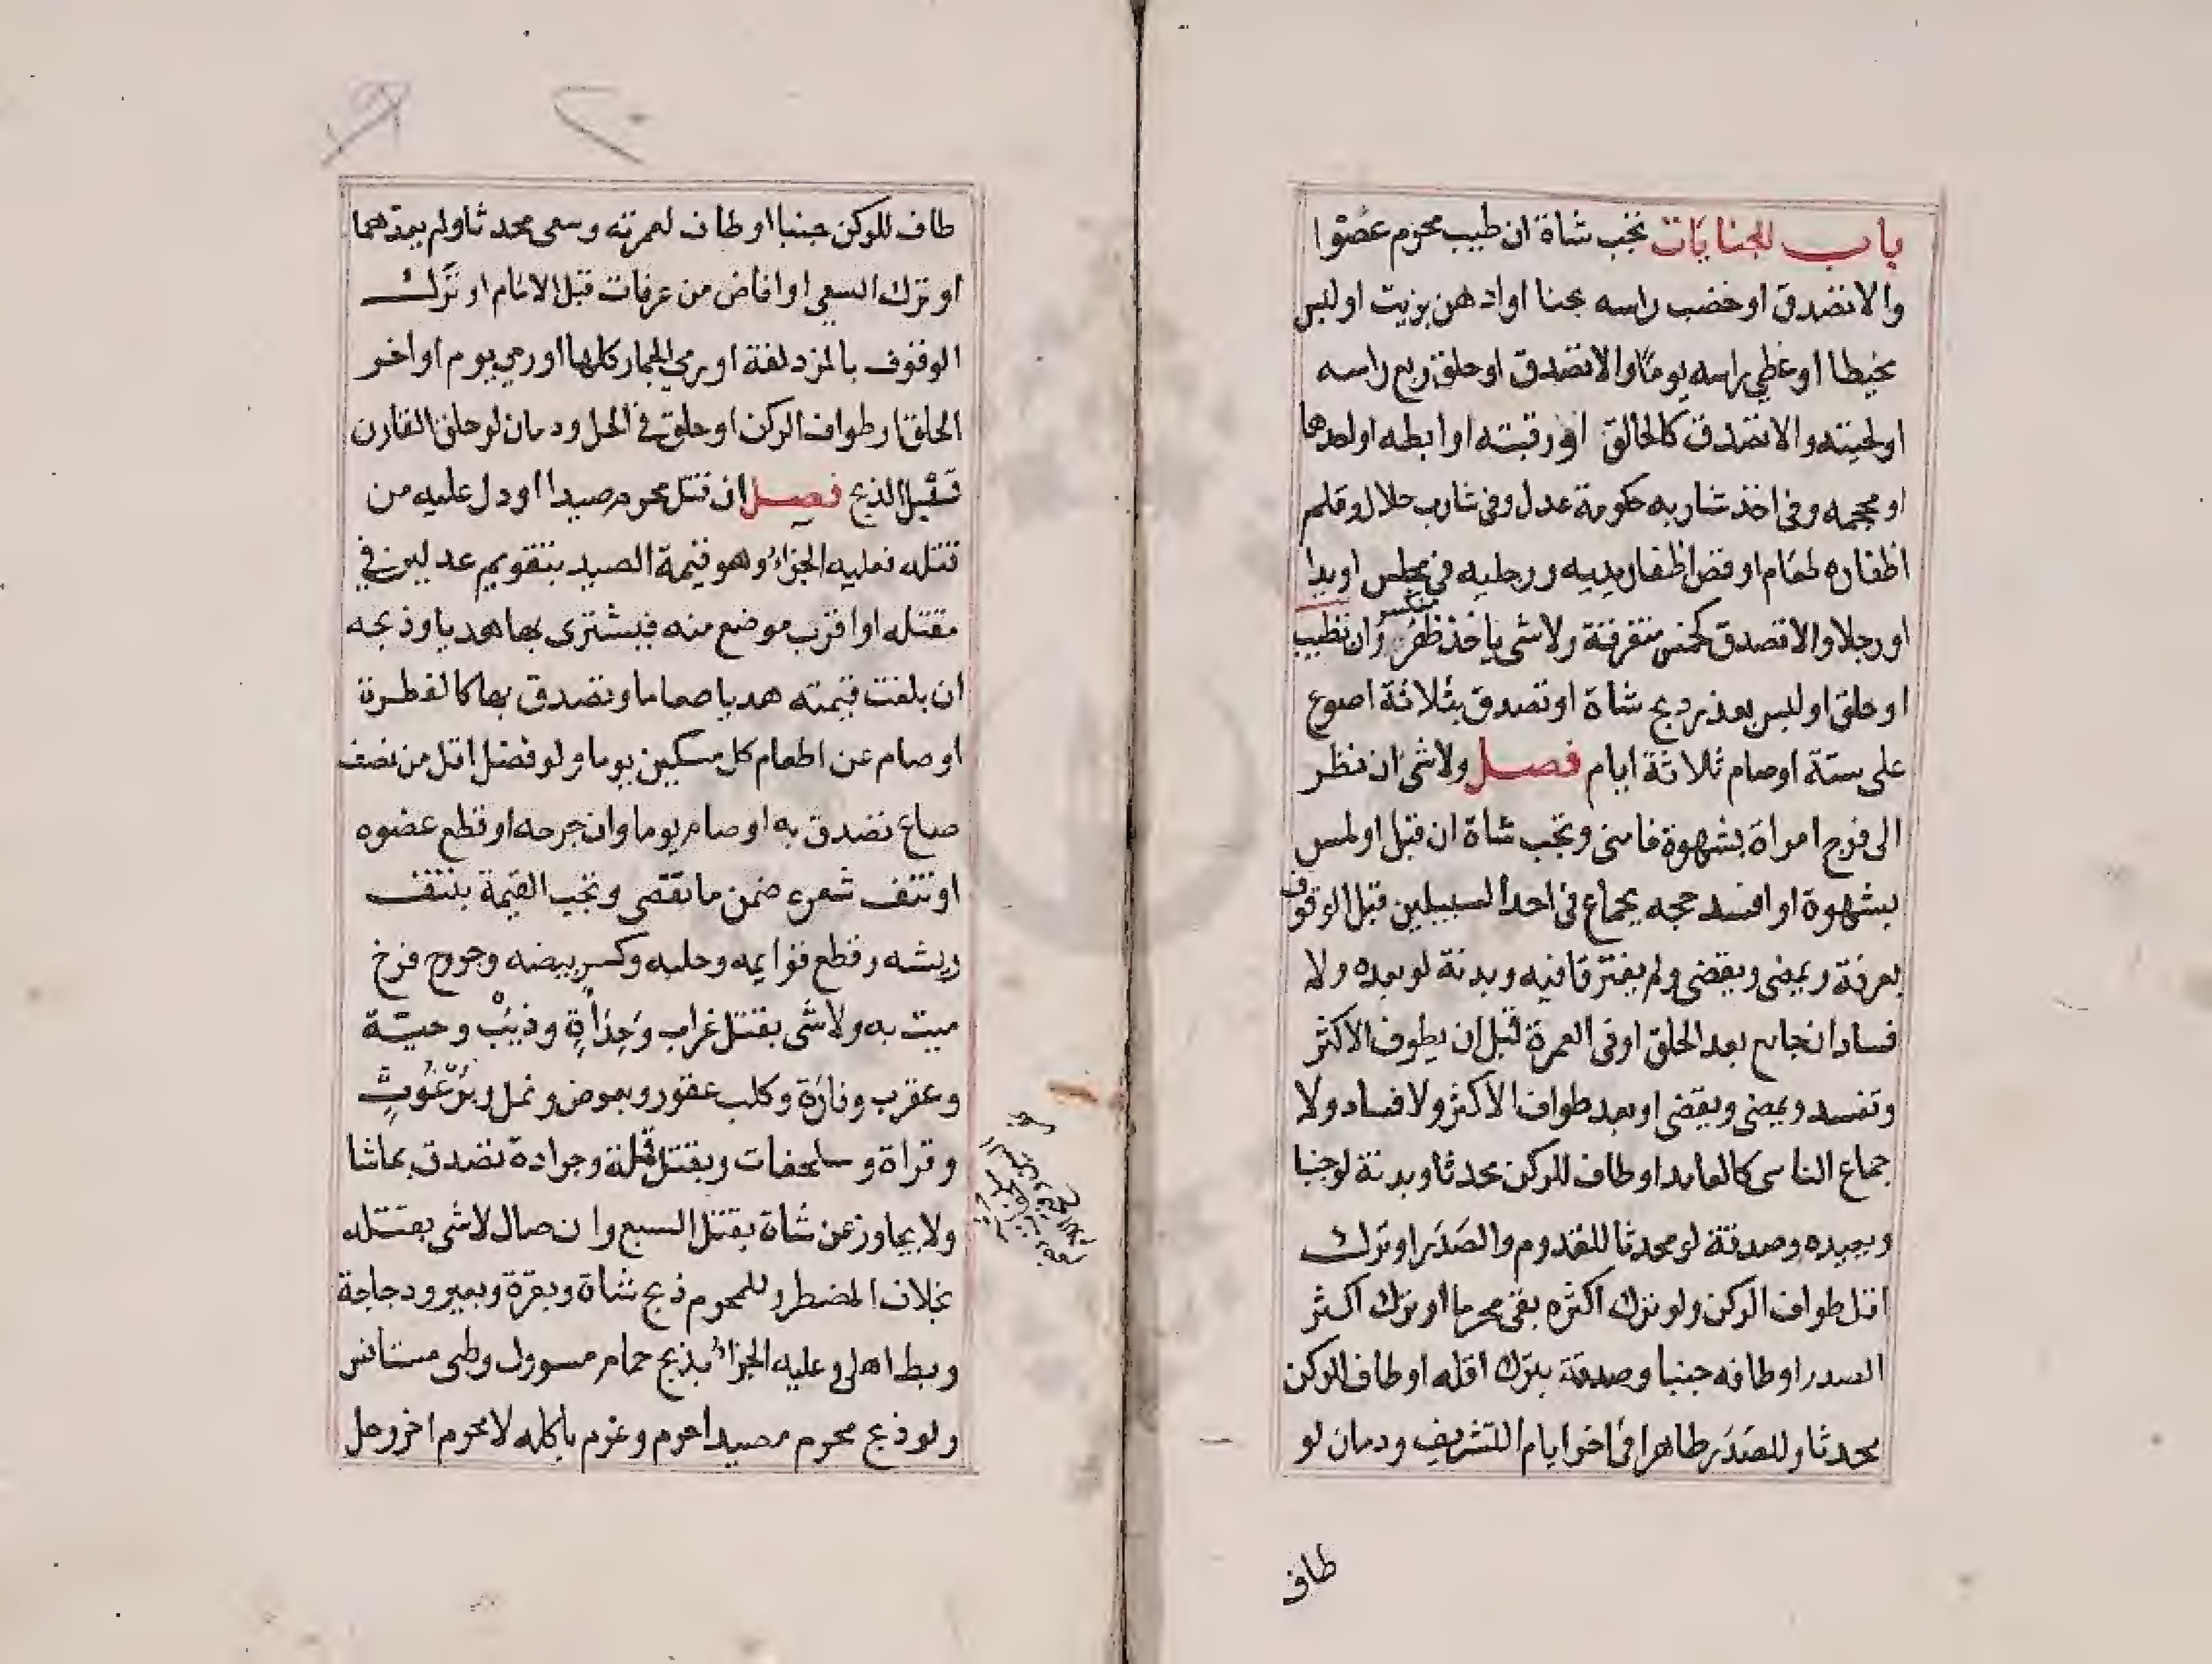 باب الجنايات تجب شاة ان طيب محرم عضوا
والا تصدق او خضب راسه بحنا او ادهن بزيت او لبس
مخيطا او غطي راسه يوما والا تصدق او حلق ربع راسه
او لحيته والا تصدق كالحالق او رقبته او ابطه او احدهما
او محجمه وفي اخذ شاربه حكومة عدل وفي شارب حلال او قلم
اظفاره طعام او قص اظفار يديه ورجليه في مجلس او يدا
او رجلا والا تصدق كخمس متفرقة ولا شي باخذ ظفر منكسر وان تطيب
او حلق او لبس بعذر ذبح شاة او تصدق بثلاثة اصوع
على ستة او صام ثلاثة ايام فصل ولا شي ان نظر
الى فرج امراة بشهوة فامنى وتجب شاة ان قبل او لمس
بشهوة او افسد حجه بجماع في احد السبيلين قبل الوقوف
بعرفة ويمضى ويقضى ولم يفترقا فيه وبدنة لو بعده ولا
فساد ان جامع بعد الحلق او في العمرة قبل ان يطوف الاكثر
وتفسد ويمضى ويقضى او بعد طواف الاكثر ولا فساد ولا
جماع الناسى كالعامد او طاف للركن محدثا وبدنة لو جنبا
ويعيده وصدقة لو محدثا للقدوم والصدر او ترك
اقل طواف الركن ولو ترك اكثره بقى محرما او ترك اكثر
الصدر او طافه جنبا وصدقة بترك اقله او طاف للركن
محدثا وللصدر طاهرا في اخر ايام التشريق ودمان لو
طاف
طاف للركن جنبا او طاف لعمرته وسعى محدثا ولم يعدهما
او ترك السعي او افاض من عرفات قبل الامام او ترك
الوقوف بالمزدلفة او رمي الجمار كلها او رمي يوم او اخر
الحلق او طواف الركن او حلق في الحل ودمان لو حلق القارن
قبل الذبح فصل ان قتل محرم صيدا او دل عليه من
قتله فعليه الجزاء وهو قيمة الصيد بتقويم عدلين في
مقتله او اقرب موضع منه فيشترى بها هديا وذبحه
ان بلغت قيمته هديا او طعاما وتصدق بها كالفطرة
او صام عن اطعام كل مسكين يوما ولو فضل اقل من نصف
صاع تصدق به او صام يوما وان جرحه او قطع عضوه
او نتف شعره ضمن ما نقص وتجب القيمة بنتف
ريشه وقطع قوايمه وحلبه وكسر بيضه وخروج فرخ
ميت به ولا شى بقتل غراب وحداة وذيب وحية
وعقرب وفارة وكلب عقور وبعوض ونمل وبرغوث
وقراة وسلحفات وبقتل قملة وجرادة تصدق بما شا
ولا يجاوز عن شاة بقتل السبع وان صال لا شى بقتله
بخلاف المضطر وللمحرم ذبح شاة وبقرة وبعير ودجاجة
وبط اهلى وعليه الجزاء بذبح حمام مسرول وظبى مستانس
ولو ذبح محرم صيدا حرم وغرم باكله لا محرم اخر وحل